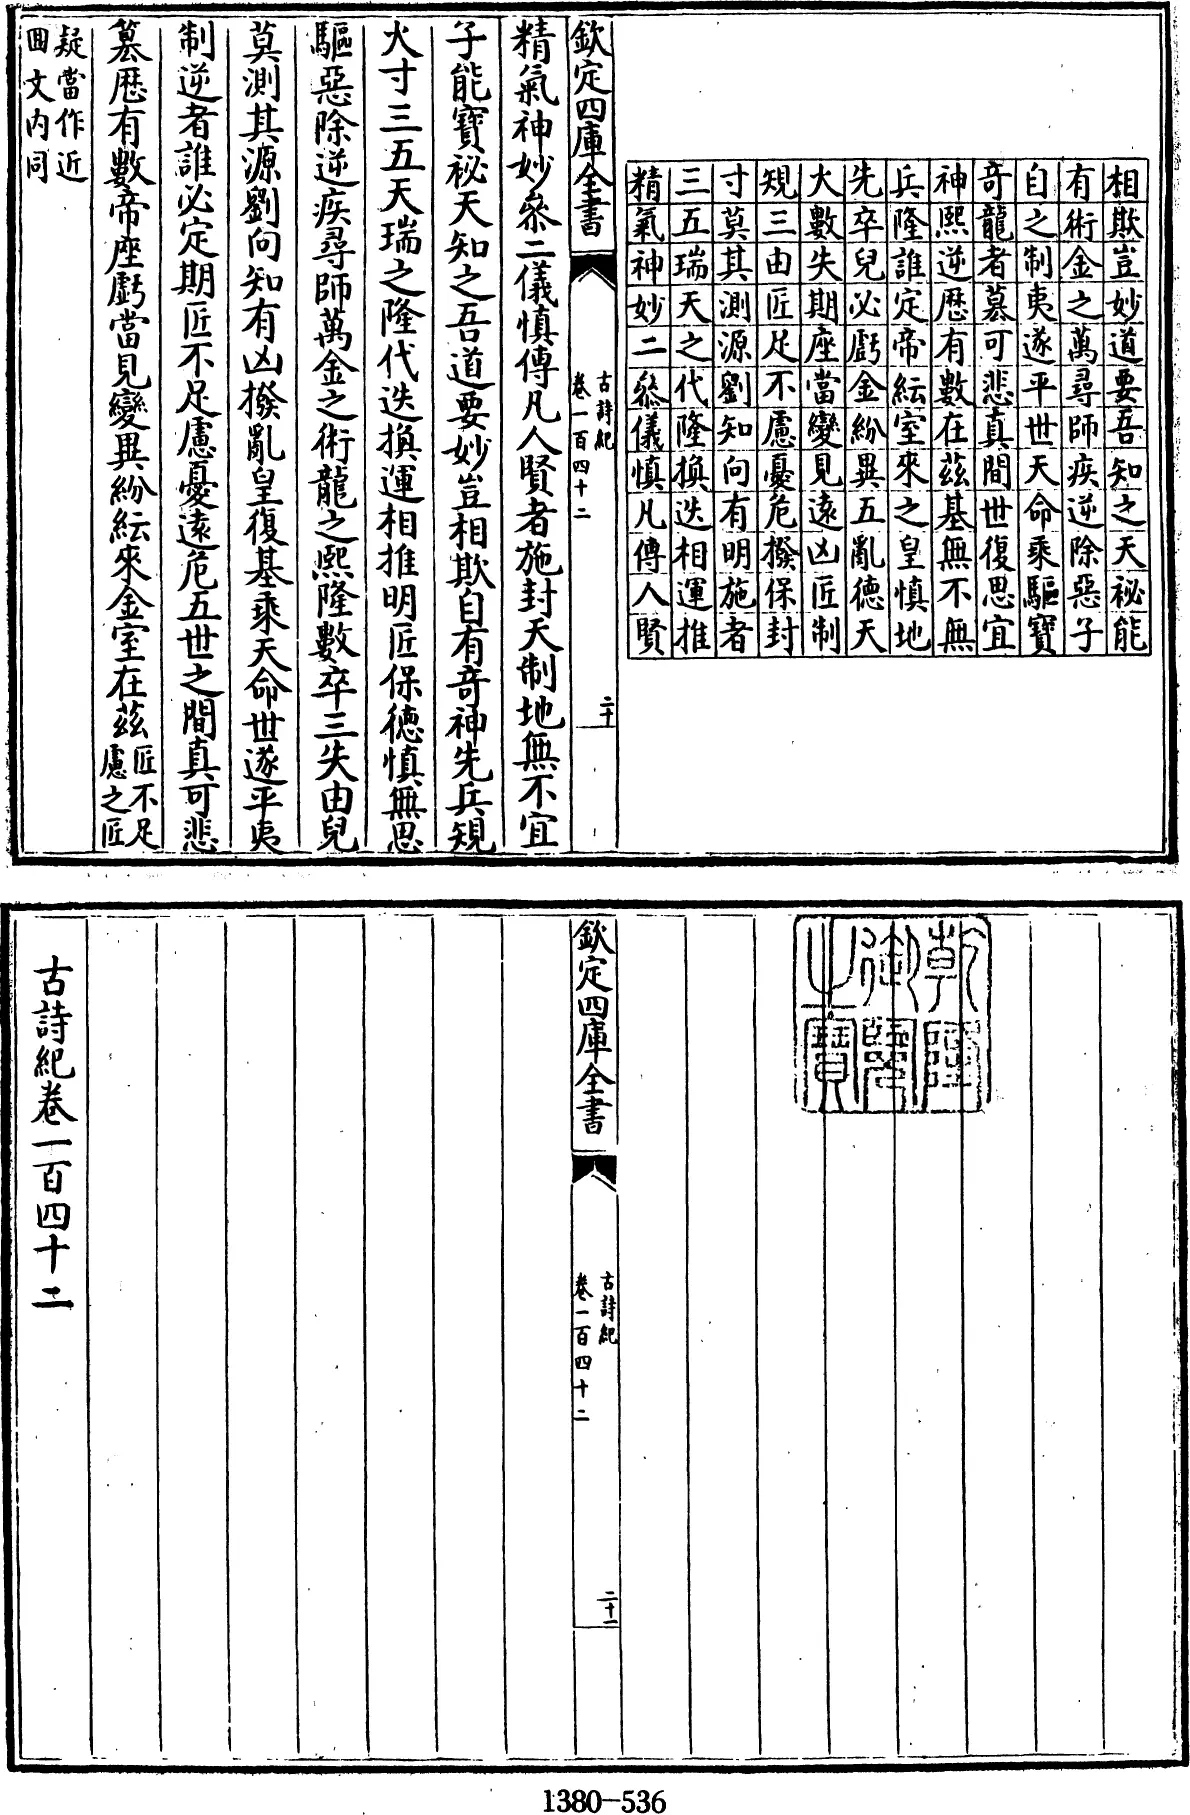 相欺豈妙道要吾知之天祕能
有術金之萬尋師疾逆除惡子
自之制夷遂平世天命乘驅寶
奇龍者慕可悲真間世復思宜
神熙逆厯有數在茲基無不無
兵隆誰定帝紜室來之皇慎地
先卒兒必虧金紛異五亂德天
火數失期座當變見遠凶匠制
規三由匠足不慮憂危撥保封
寸莫其測源劉知向有明施者
三五瑞天之代隆換迭相運推
精氣神妙二叅儀慎凡傳人賢
欽定四庫全書
古詩紀
卷一百四十二
二十
精氣神妙叅二儀慎傳凡人賢者施封天制地無不宜
子能寶祕天知之吾道要妙豈相欺自有奇神先兵規
火寸三五天瑞之隆代迭換運相推明匠保德慎無思
驅惡除逆疾尋師萬金之術龍之熙隆數卒三失由兒
莫測其源劉向知有凶撥亂皇復基乘天命世遂平夷
制逆者誰必定期匠不足慮憂遠危五世之間真可悲
篡厯有數帝座虧當見變異紛紜來金室在茲匠不足
慮之匠
疑當作近
圖文内同
乾隆御覽之寶
欽定四庫全書
古詩紀
卷一百四十二
二十一
古詩紀卷一百四十二
1380-536